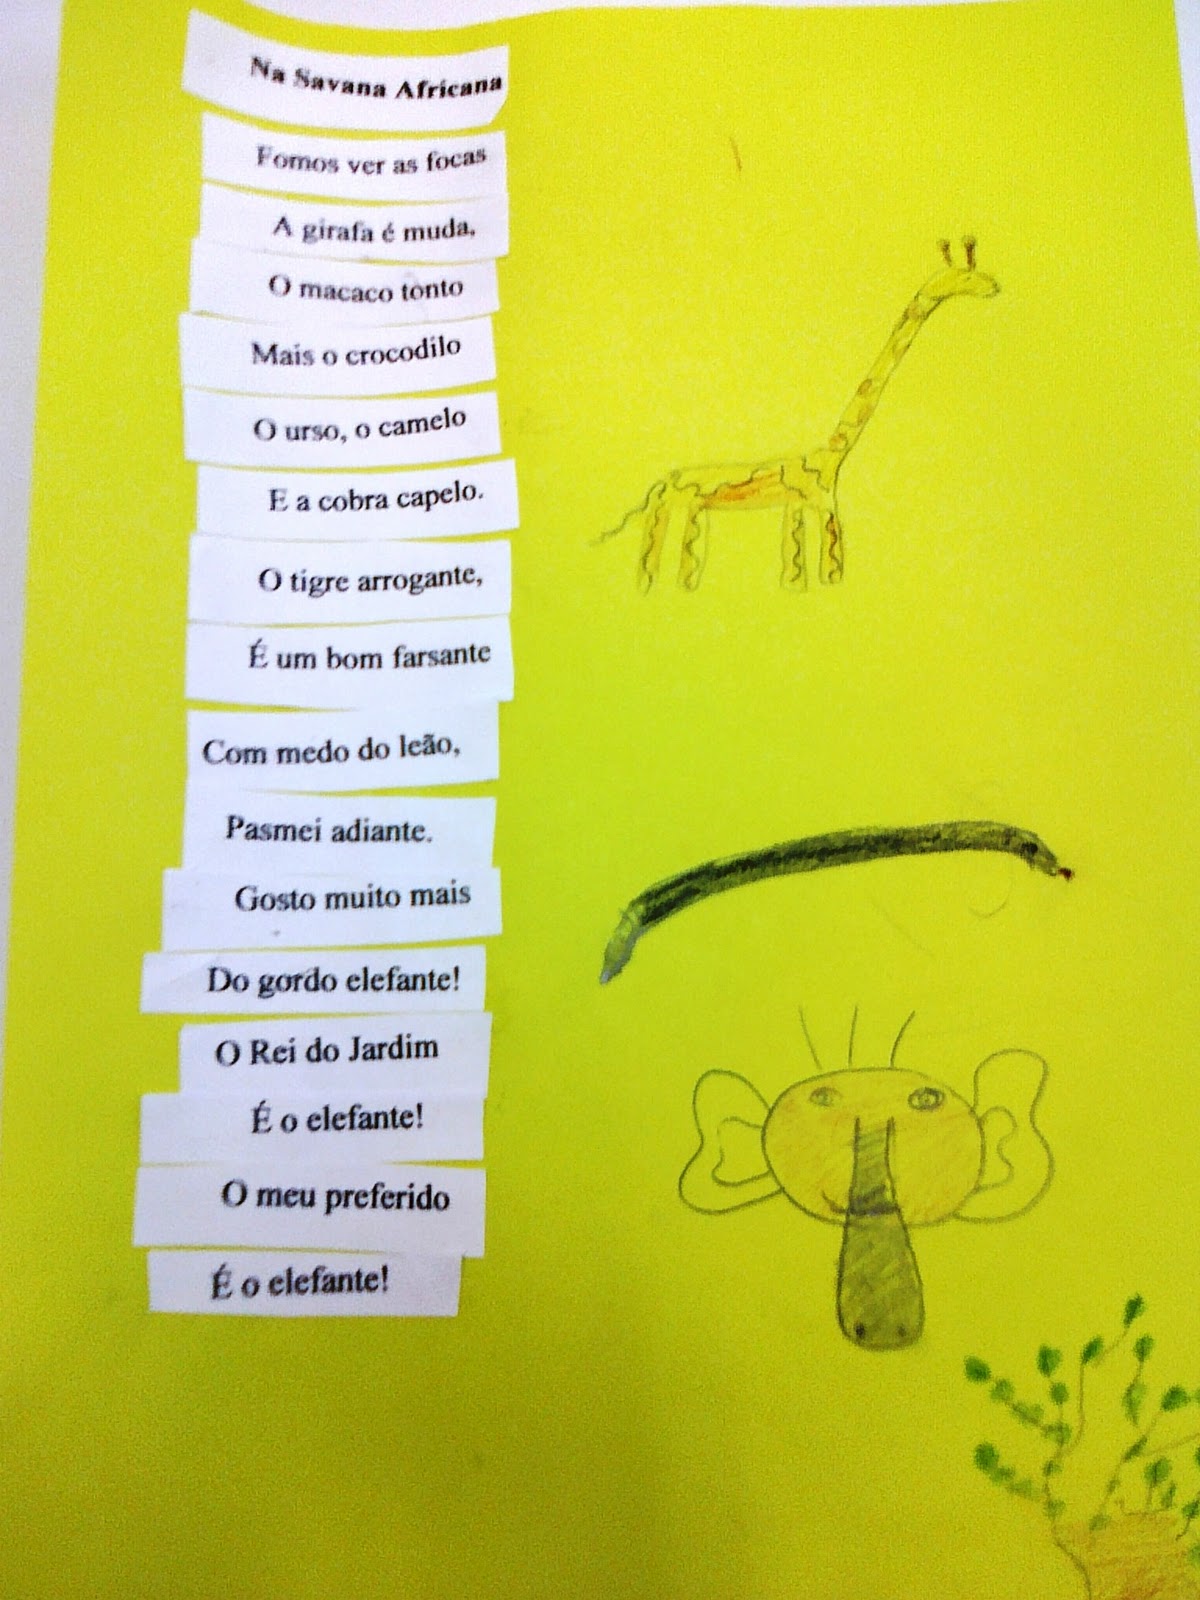 Na Savana Africana
Fomos ver as focas
A girafa é muda,
O macaco tonto
Mais o crocodilo
O urso, o camelo
E a cobra capelo.
O tigre arrogante,
É um bom farsante
Com medo do leão,
Pasmei adiante.
Gosto muito mais
Do gordo elefante!
O Rei do Jardim
É o elefante!
O meu preferido
É o elefante!